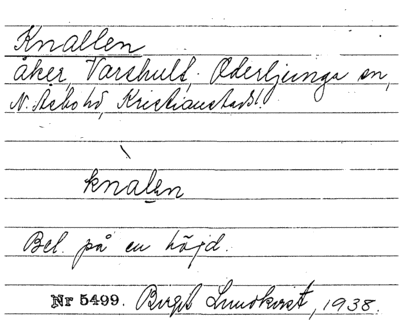 Knallen
åker, Varshult, Oderljunga sn,
N. Åsbo hd, Kristianstads l.
knalen
Bel. på en höjd.
Nr 5499. Birgit Lundkvist, 1938.